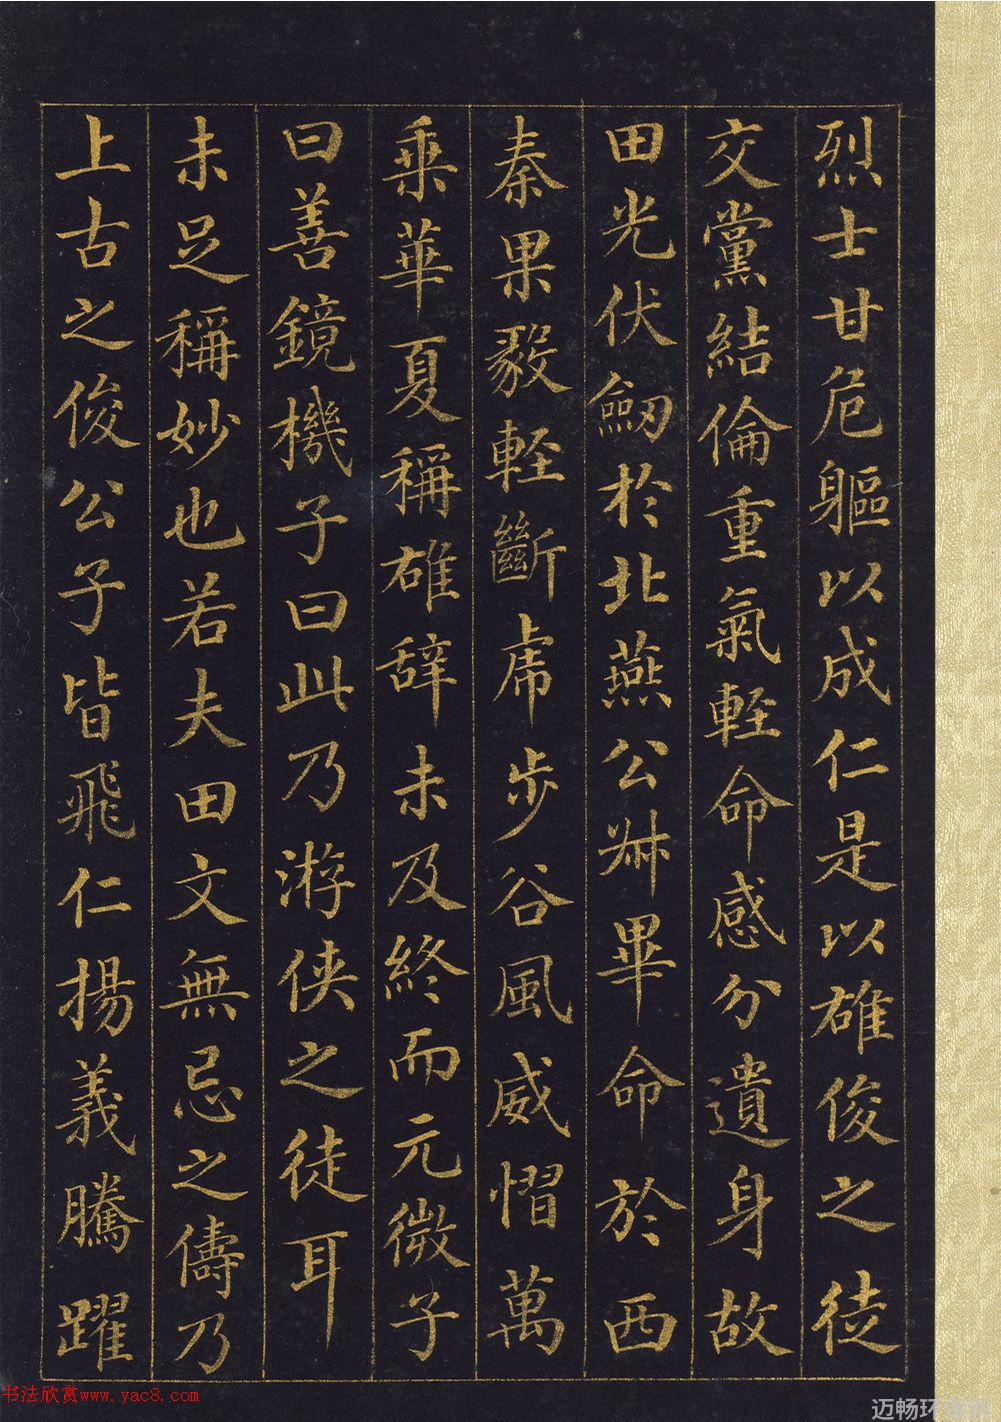 烈士甘危軀以成仁是以雄俊之徒
交黨結倫重氣輕命感分遺身故
田光伏劒於北燕公叔畢命於西
秦果毅輕斷虎步谷風威慴萬
乘華夏稱雄辭未及終而元微子
曰善鏡機子曰此乃游侠之徒耳
未足稱妙也若夫田文無忌之儔乃
上古之俊公子皆飛仁揚義騰躍
书法欣赏www.yac8.com
迈畅环